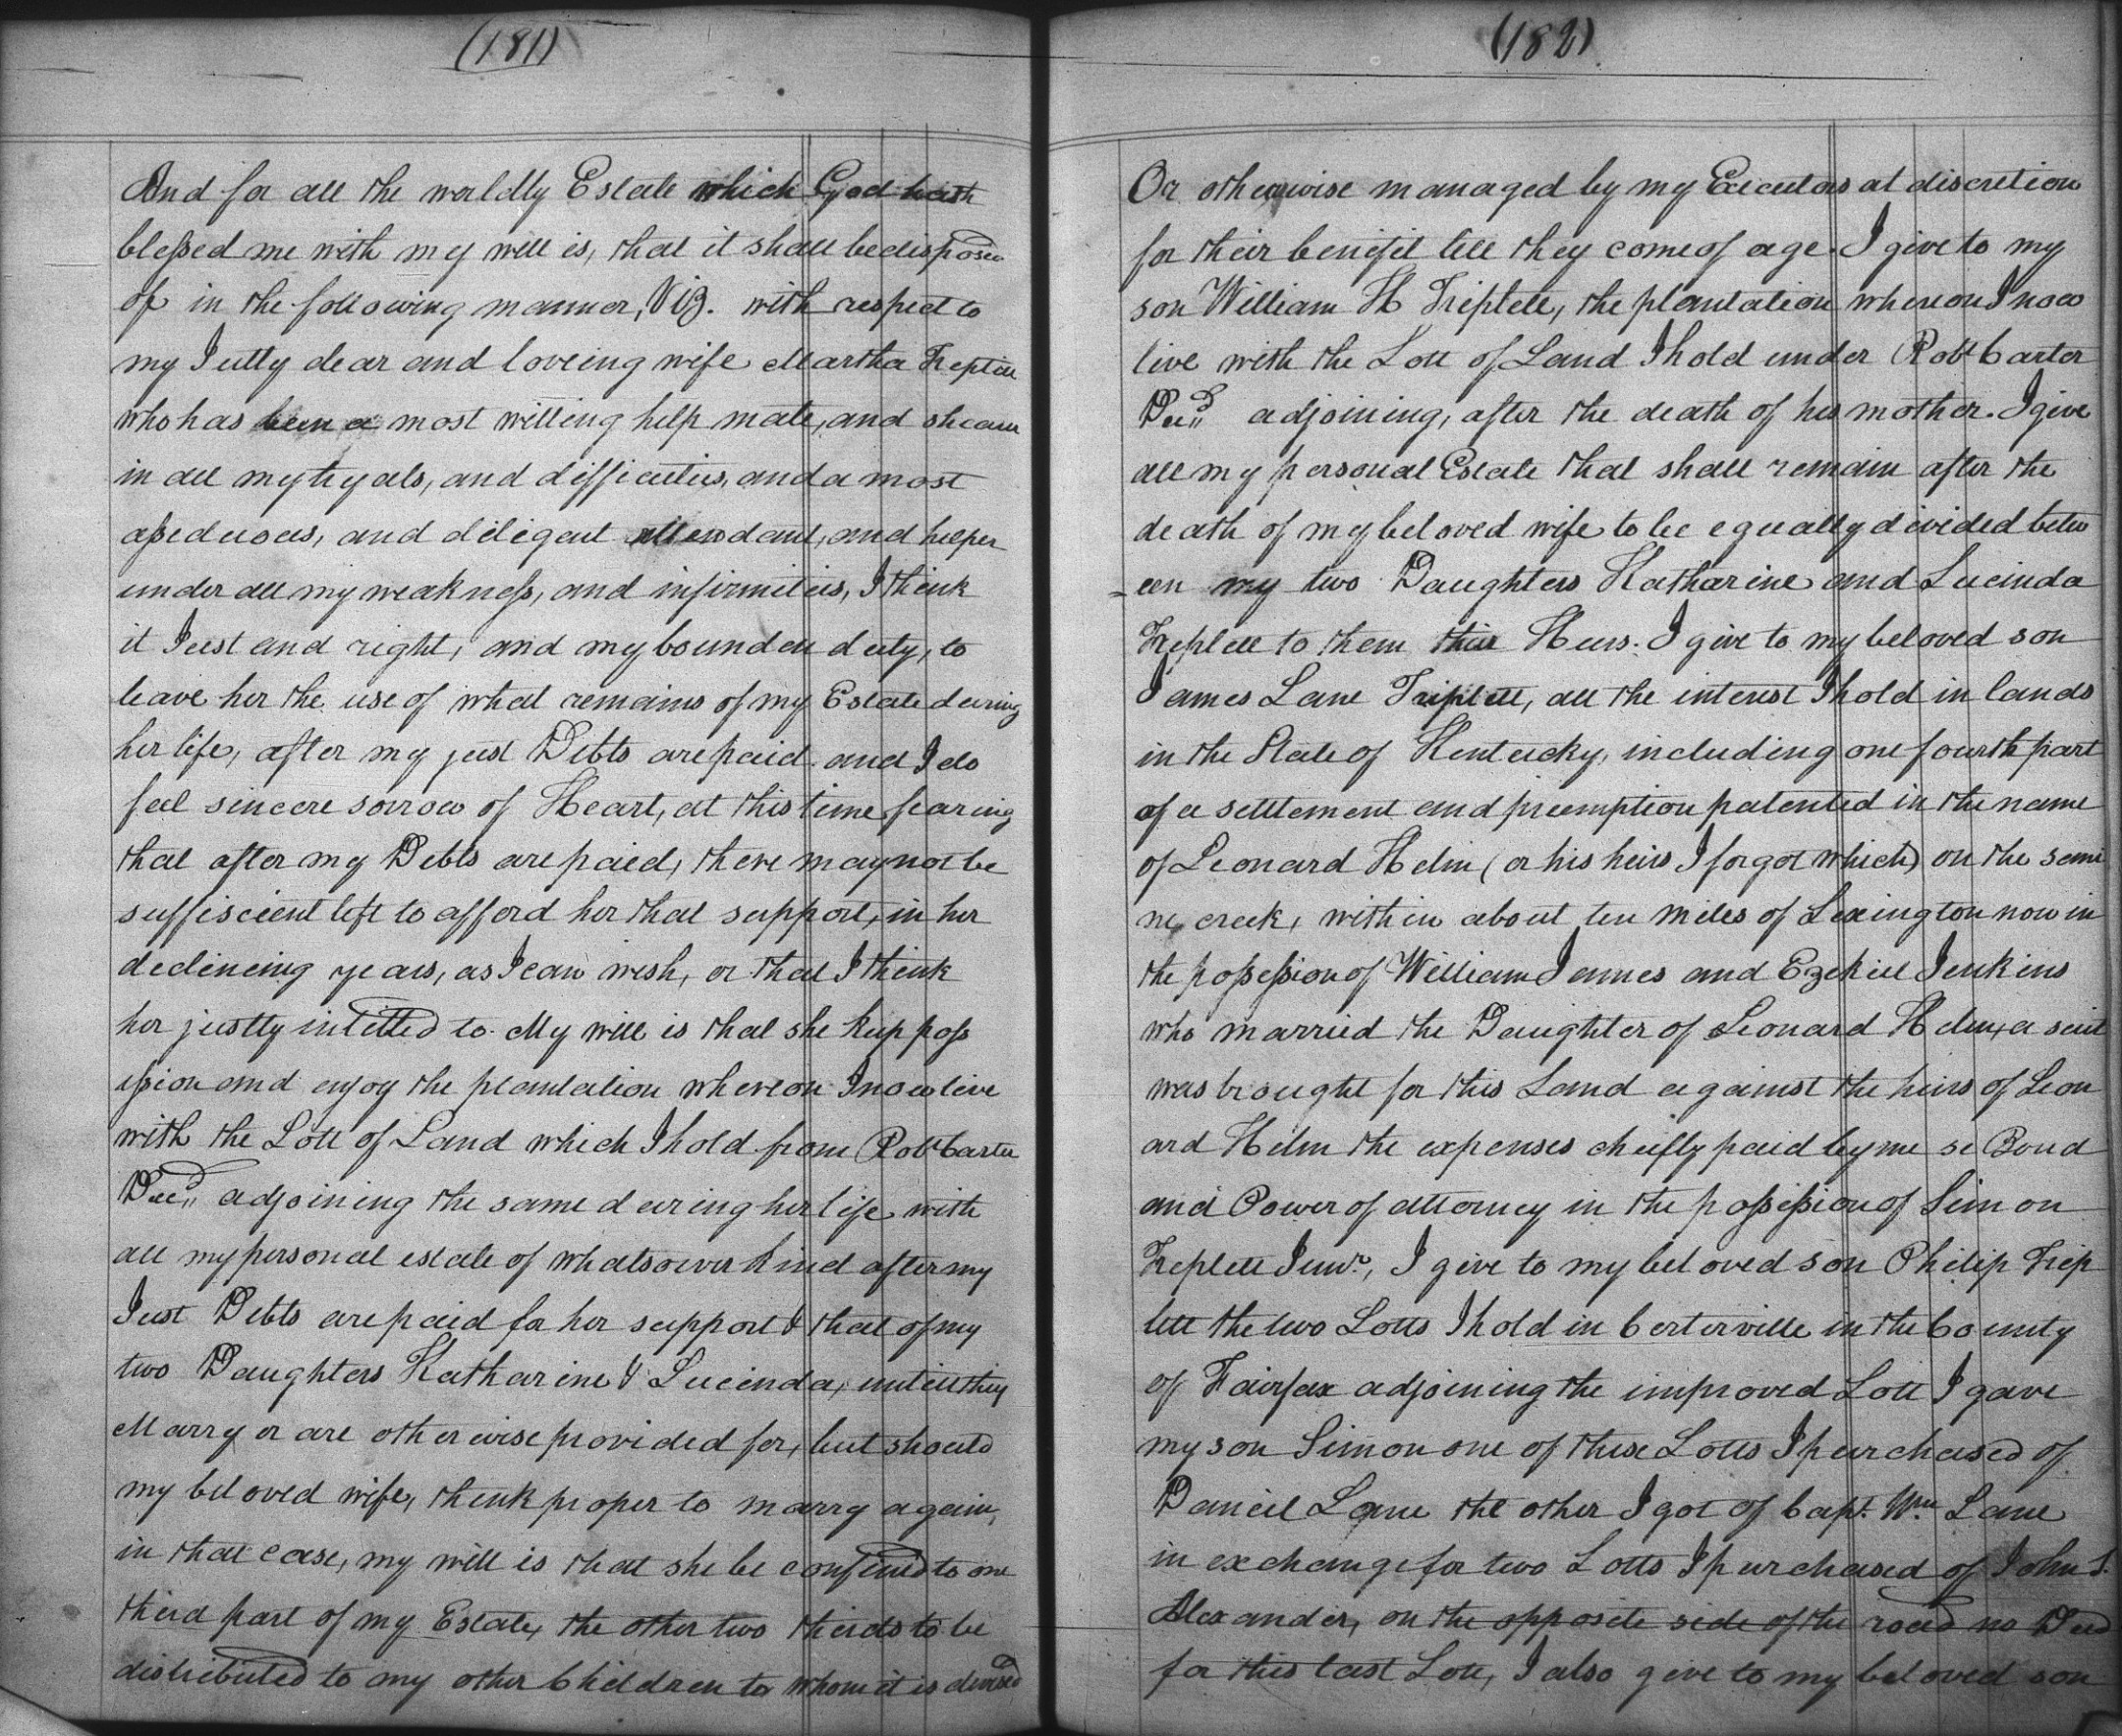 (181)
And for all the worldly Estate which God hath
blessed me with my will is, that it shall be disposed
of in the following manner, Viz. with respect to
my Jutly dear and loveing wife Martha Triplett
who has been a most willing help mate, and sheare
in all my tryals, and difficulties, and a most
asseduous, and diligent attendant, and helper
under all my weakness, and infirmities, I think
it Just and right, and my bounden duty, to
leave her the use of what remains of my Estate during
her life, after my just Debts are paid. and I do
feel sincere sorrow of Heart, at this time fearing
that after my Debts are paied, there may not be
suffiscient left to afford her that support, in her
declineing years, as I can wish, or that I think
her justly intitled to. My will is that she keep poss
ession and enjoy the plantation whereon I now live
with the Lott of Land which I hold from Robt Carter
Decd,, adjoining the same during her life with
all my personal estate of whatsoever kind after my
Just Debts are paid for her support & that of my
two Daughters Katharine & Lucinda, untill they
Marry or are otherwise provided for, but should
my beloved wife, think proper to marry again,
in that case, my will is that she be confined to one
third part of my Estate, the other two thirds to be
distributed to my other Children to whom it is devised
(182)
Or otherwise managed by my Executors at discretion
for their benifit till they come of age. I give to my
son William H Triplett, the plantation whereon I now
live with the Lott of Land I hold under Robt Carter
Decd,, adjoining, after the death of his mother. I give
all my personal Estate that shall remain after the
death of my beloved wife to be equally divided betw
een my two Daughters Katharine and Lucinda
Triplett to them their Heirs. I give to my beloved son
James Lane Triplett, all the interest I hold in lands
in the State of Kentucky, including one fourth part
of a settlement and preemption patented in the name
of Leonard Helm (or his heirs I forgot which) on the semi
ne creek, within about ten miles of Lexington now in
the possession of William James and Ezekiel Jenkins
who married the Daughter of Leonard Helm, a suit
was brought for this Land against the heirs of Leon
ard Helm the expenses chiefly paid by me se Bond
and Power of attorney in the possession of Simon
Triplett Junr., I give to my beloved son Philip Trip
lett the two Lotts I hold in Certerville in the County
of Fairfax adjoining the improved Lott I gave
my son Simon one of these Lotts I purchased of
Daniel Lane the other I got of Capt. Wm Lane
in exchange for two Lotts I purchased of John S.
Alexander, on the opposite side of the road no Deed
for this last Lott, I also give to my beloved son